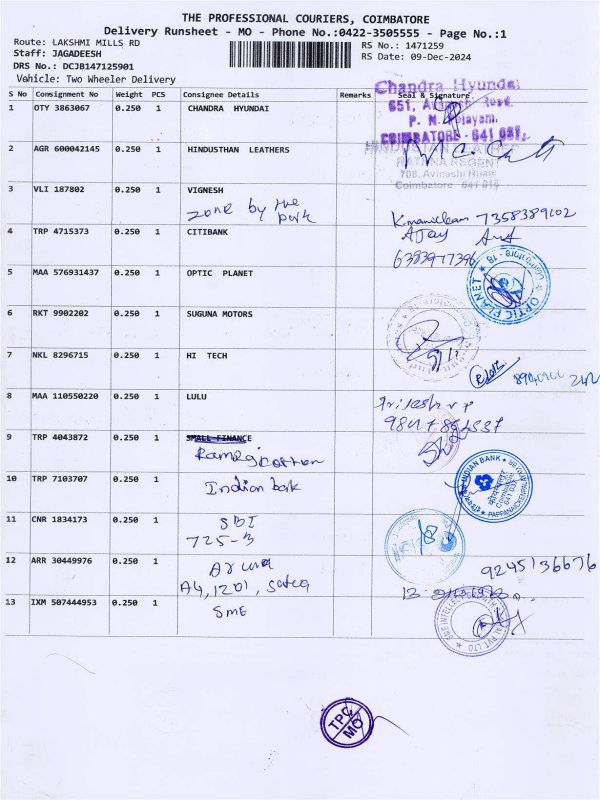 THE PROFESSIONAL COURIERS, COIMBATORE
Delivery Runsheet - MO - Phone No.:0422-3505555 - Page No.:1
Route: LAKSHMI MILLS RD
RS No.: 1471259
Staff: JAGADEESH
RS Date: 09-Dec-2024
DRS No.: DCJB147125901
Vehicle: Two Wheeler Delivery
S No Consignment No Weight PCS Consignee Details Remarks Seal & Signature
1 OTY 3863067 0.250 1 CHANDRA HYUNDAI
Chandra Hyundai
651, Avinashi Road,
P. N. Palayam,
COIMBATORE - 641 037.
2 AGR 600042145 0.250 1 HINDUSTHAN LEATHERS
RATHNA REGENT
708, Avinashi Road
Coimbatore 641 018
3 VLI 187802 0.250 1 VIGNESH
zone by the
park
7358389102
4 TRP 4715373 0.250 1 CITIBANK
Ajay
6383977396
5 MAA 576931437 0.250 1 OPTIC PLANET
OPTIC PLANET
Coimbatore - 18
6 RKT 9902202 0.250 1 SUGUNA MOTORS
7 NKL 8296715 0.250 1 HI TECH
8 MAA 110550220 0.250 1 LULU
9 TRP 4043872 0.250 1 SMALL FINANCE
10 TRP 7103707 0.250 1 Indian bank
INDIAN BANK
Coimbatore
641 037
11 CNR 1834173 0.250 1 SBI
725-3
18
12 ARR 30449976 0.250 1 Aruna
A4, 1201,
9245136676
13 IXM 507444953 0.250 1 SME
PVT LTD
TPC
MO